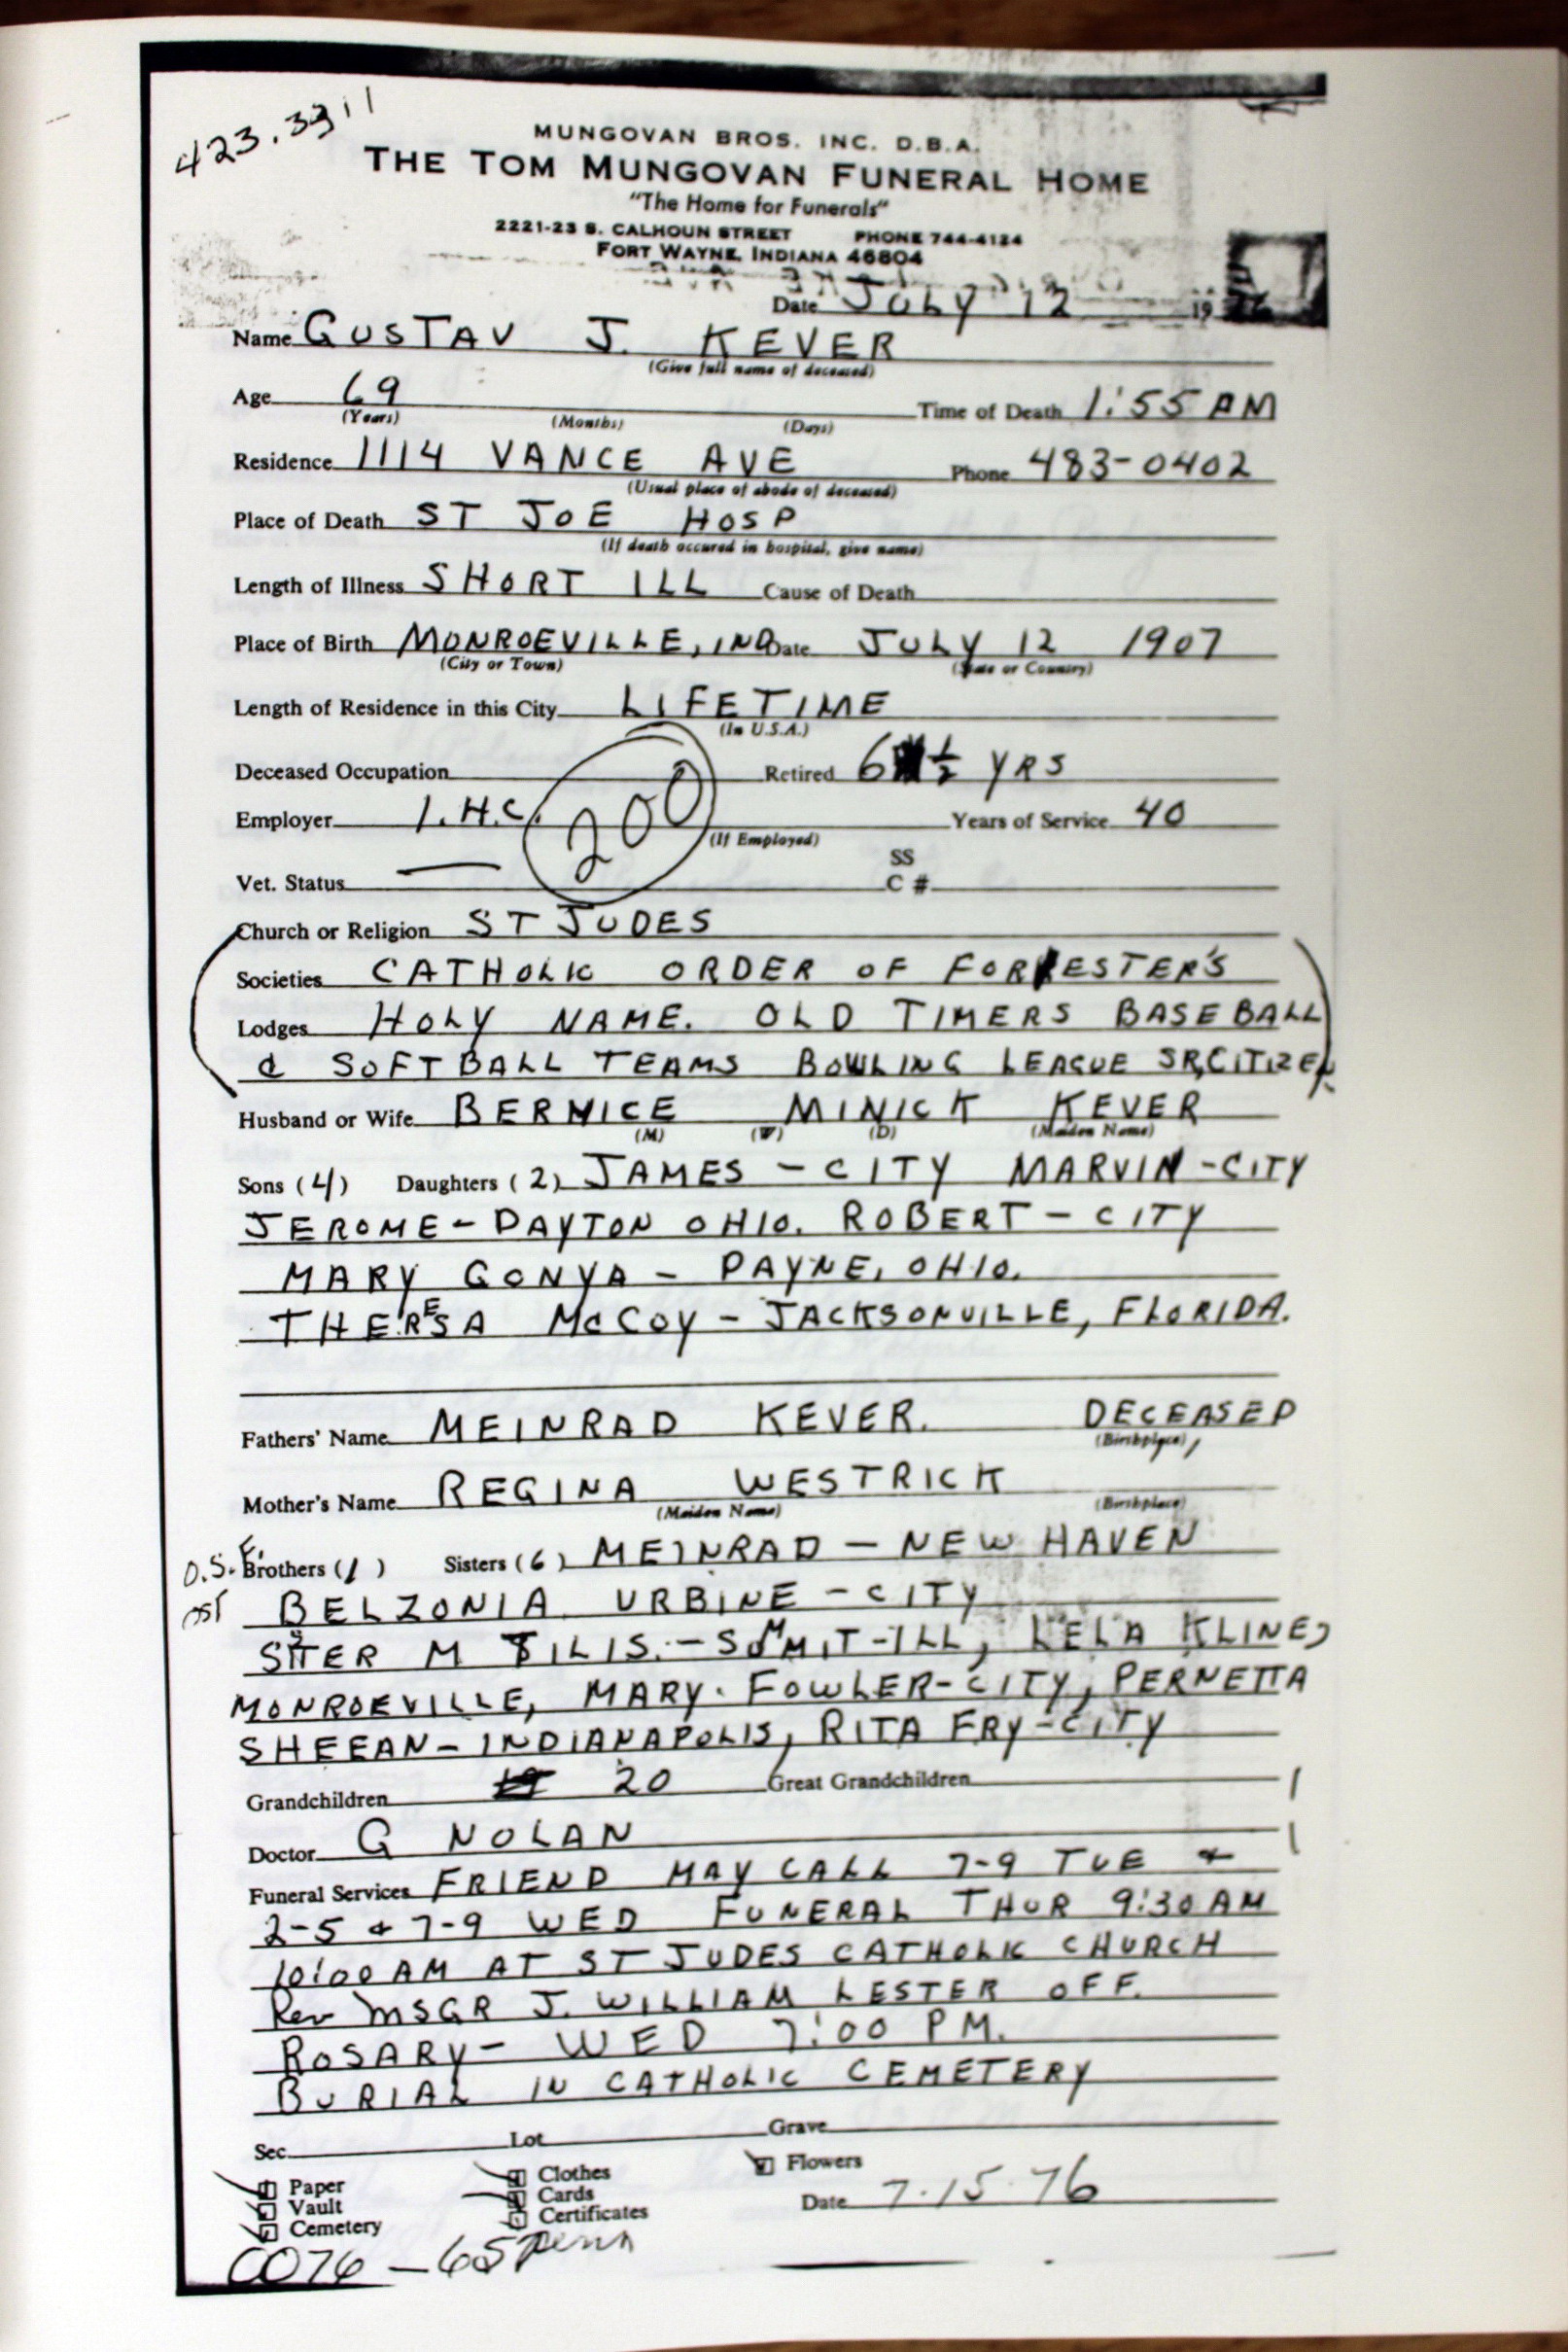 423.3911
MUNGOVAN BROS. INC. D.B.A.
THE TOM MUNGOVAN FUNERAL HOME
"The Home for Funerals"
2221-23 S. CALHOUN STREET PHONE 744-4124
FORT WAYNE, INDIANA 46804
Date JULY 12 19 76
Name GUSTAV J. KEVER
(Give full name of deceased)
Age 69 Time of Death 1:55 AM
(Years) (Months) (Days)
Residence 1114 VANCE AVE Phone 483-0402
(Usual place of abode of deceased)
Place of Death ST JOE HOSP
(If death occured in hospital, give name)
Length of Illness SHORT ILL Cause of Death
Place of Birth MONROEVILLE, IND Date JULY 12 1907
(City or Town) (State or Country)
Length of Residence in this City LIFETIME
(In U.S.A.)
Deceased Occupation Retired 6 1/2 YRS
Employer I.H.C. 200 Years of Service 40
(If Employed)
SS
Vet. Status — C #
Church or Religion ST JUDES
Societies CATHOLIC ORDER OF FORESTER'S
Lodges HOLY NAME. OLD TIMERS BASEBALL
& SOFTBALL TEAMS BOWLING LEAGUE SR, CITIZEN
Husband or Wife BERNICE MINICK KEVER
(M) (W) (D) (Maiden Name)
Sons (4) Daughters (2) JAMES - CITY MARVIN - CITY
JEROME - DAYTON OHIO. ROBERT - CITY
MARY GONYA - PAYNE, OHIO.
THERESA McCOY - JACKSONVILLE, FLORIDA.
Fathers' Name MEINRAD KEVER. DECEASED
(Birthplace)
Mother's Name REGINA WESTRICK
(Maiden Name) (Birthplace)
Brothers (1) Sisters (6) MEINRAD - NEW HAVEN
BELZONIA URBINE - CITY
SISTER M - SUMMIT - ILL, LELA KLINE,
MONROEVILLE, MARY. FOWLER - CITY, PERNETTA
SHEEAN - INDIANAPOLIS, RITA FRY - CITY
Grandchildren 20 Great Grandchildren
Doctor G NOLAN
Funeral Services FRIEND MAY CALL 7-9 TUE &
2-5 & 7-9 WED FUNERAL THUR 9:30 AM
10:00 AM AT ST JUDES CATHOLIC CHURCH
Rev MSGR J. WILLIAM LESTER OFF.
ROSARY - WED 7:00 PM.
BURIAL IN CATHOLIC CEMETERY
Sec. Lot Grave
Paper Clothes Flowers
Vault Cards Date 7.15.76
Cemetery Certificates
CO76 - 65 Penn